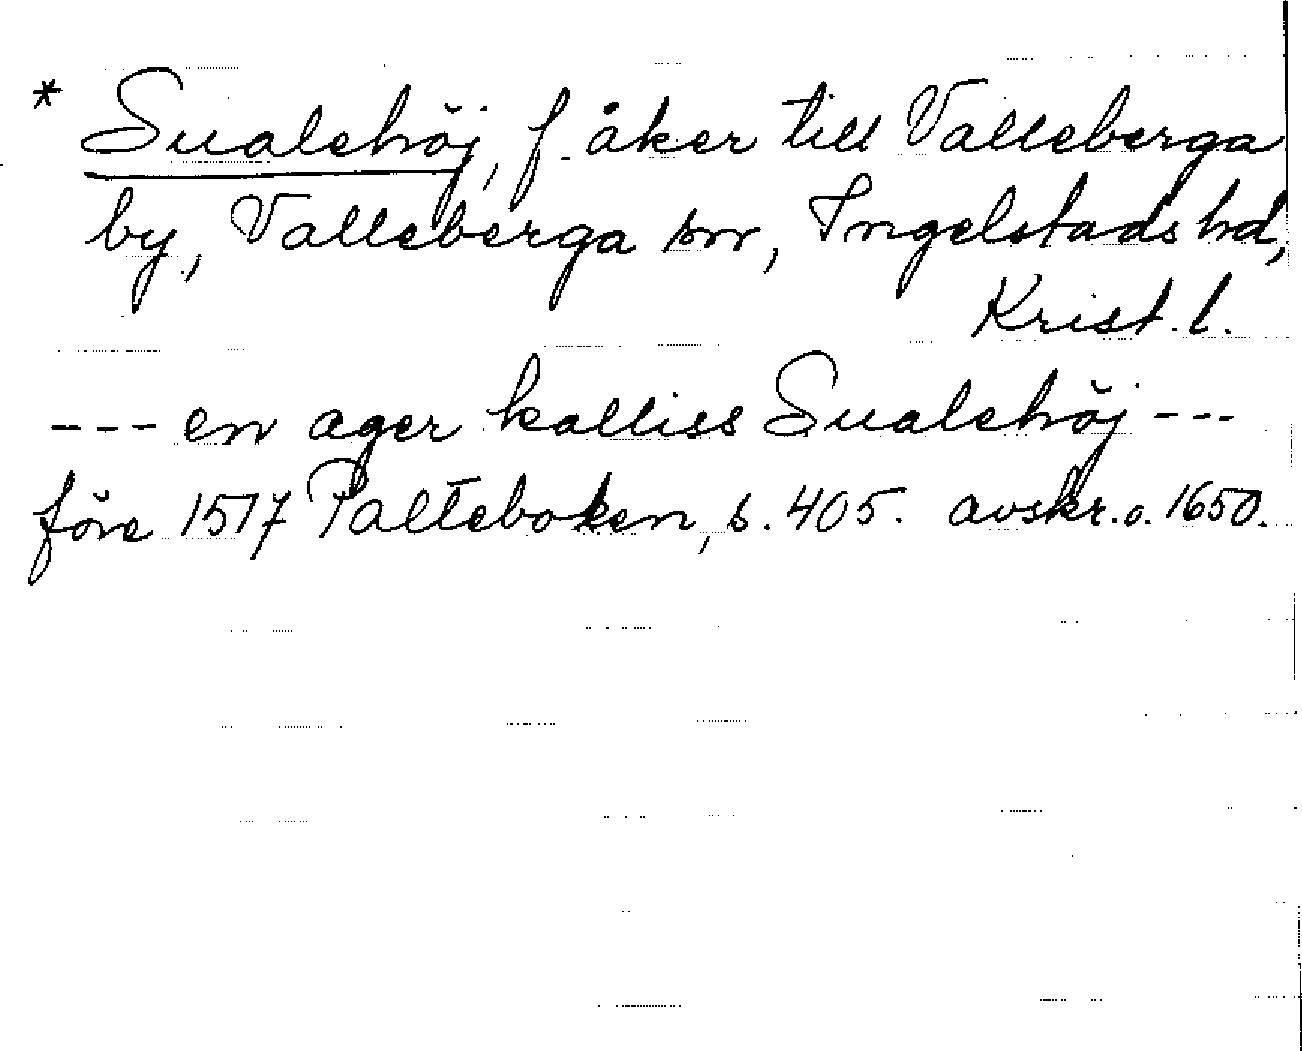 * Sualehöj, f. åker till Valleberga
by, Valleberga sn, Ingelstads hd,
Krist. l.
--- en ager kalliss Sualehöj ---
före 1517 Palteboken, s. 405. avskr. o. 1650.